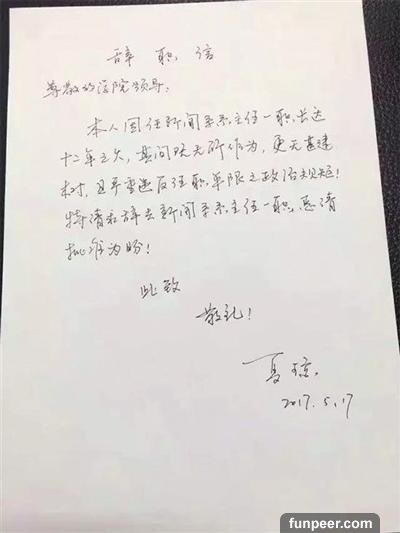 辞职信
尊敬的学院领导:
本人因任新闻系系主任一职,长达
十二年之久,其间既无所作为,更无甚建
树,且严重违反任职年限之政治规矩!
特请求辞去新闻系系主任一职,恳请
批准为盼!
此致
敬礼!
夏琼
2017.5.17
funpeer.com